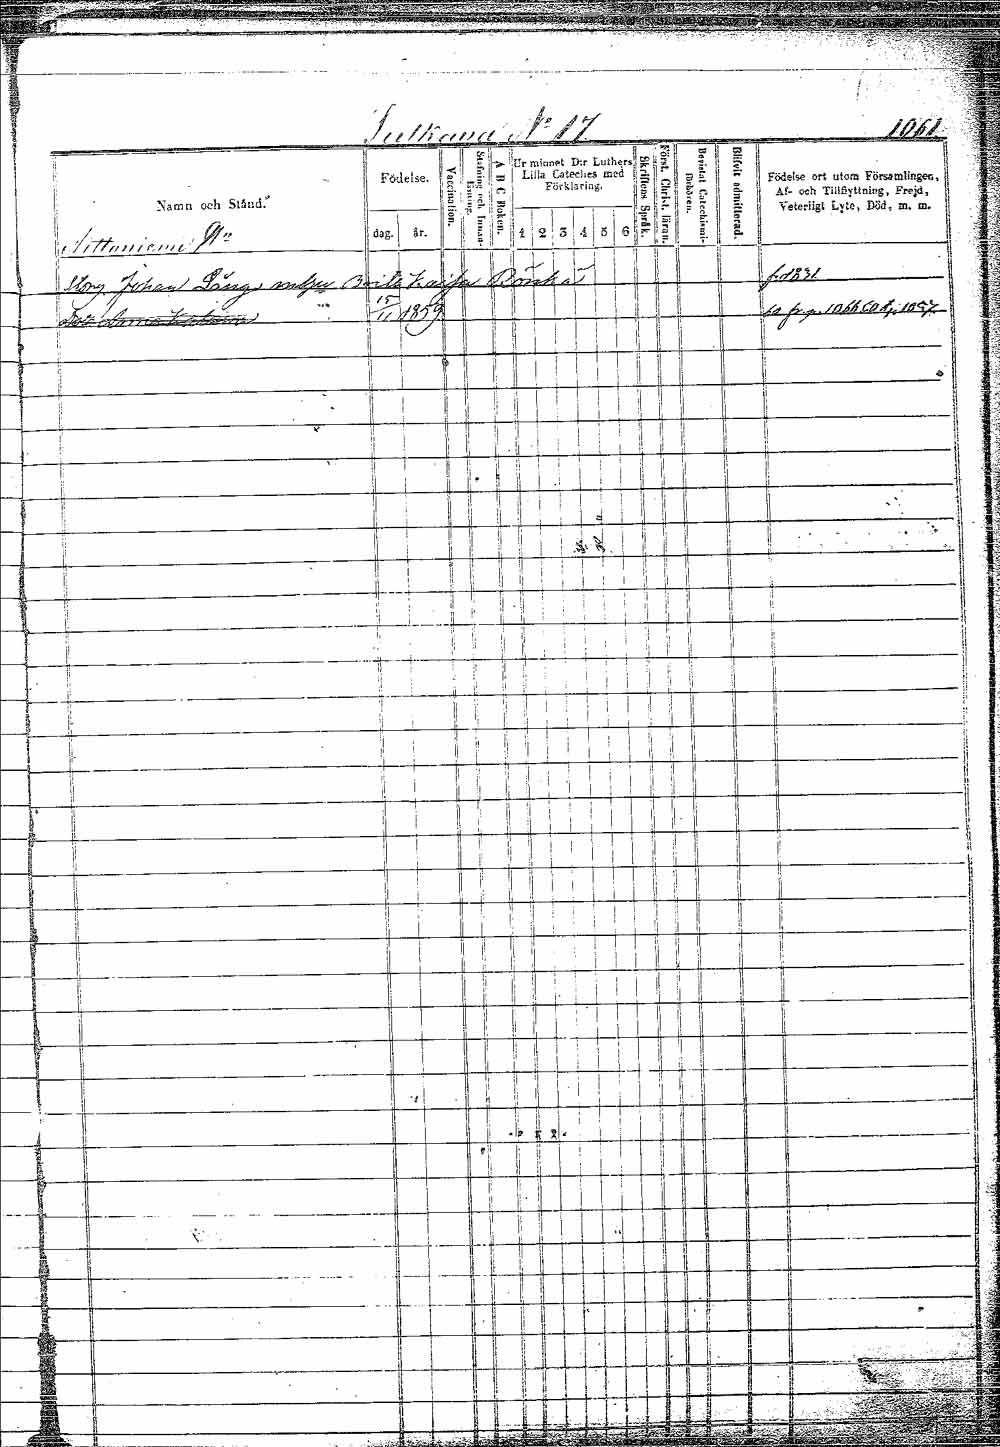 Tulkana No 17 1061
Namn och Stånd.
Födelse.
dag. år.
Vaccination.
Stafning och Innanläsning.
A B C Boken.
Ur minnet D:r Luthers
Lilla Cateches med
Förklaring.
1 2 3 4 5 6
Skriftens Språk.
Först. Christ. läran.
Bevistat Catechismi-
förhören.
Blifvit admitterad.
Födelse ort utom Församlingen,
Af- och Tillflyttning, Frejd,
Veterligt Lyte, Död, m. m.
Johan Lång Brita Kajsa f. 1831
15/11 1859 fr. p. 1066 1057